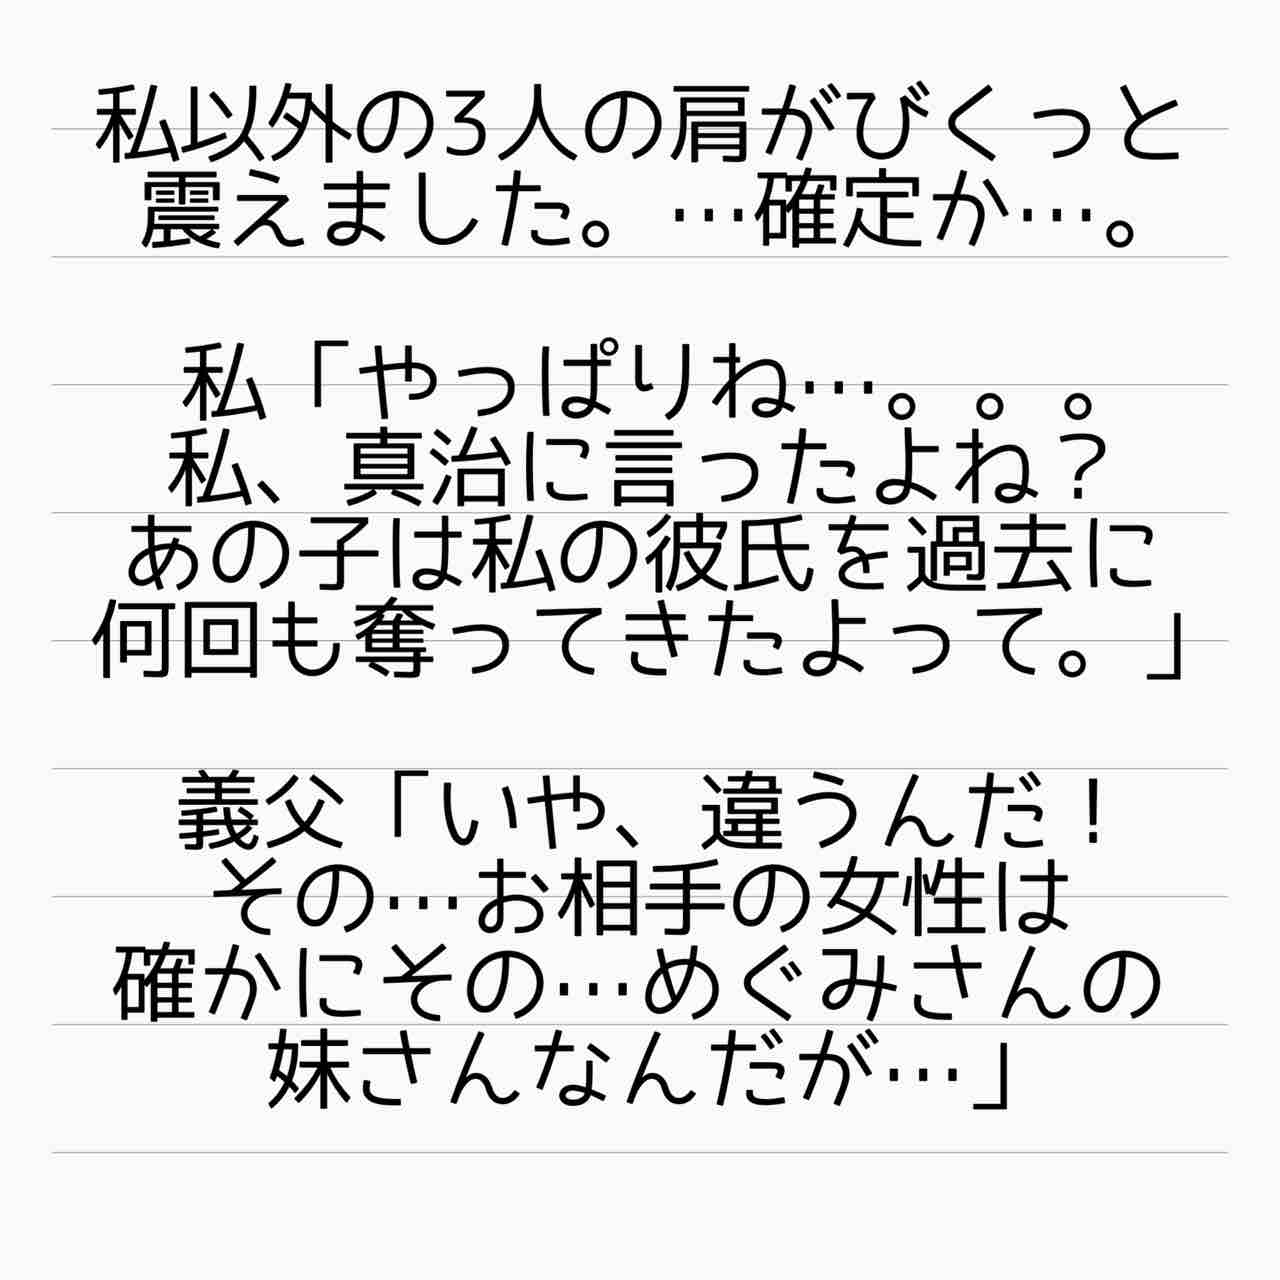 私以外の3人の肩がびくっと
震えました。…確定か…。
私「やっぱりね…。。。
私、真治に言ったよね？
あの子は私の彼氏を過去に
何回も奪ってきたよって。」
義父「いや、違うんだ！
その…お相手の女性は
確かにその…めぐみさんの
妹さんなんだが…」